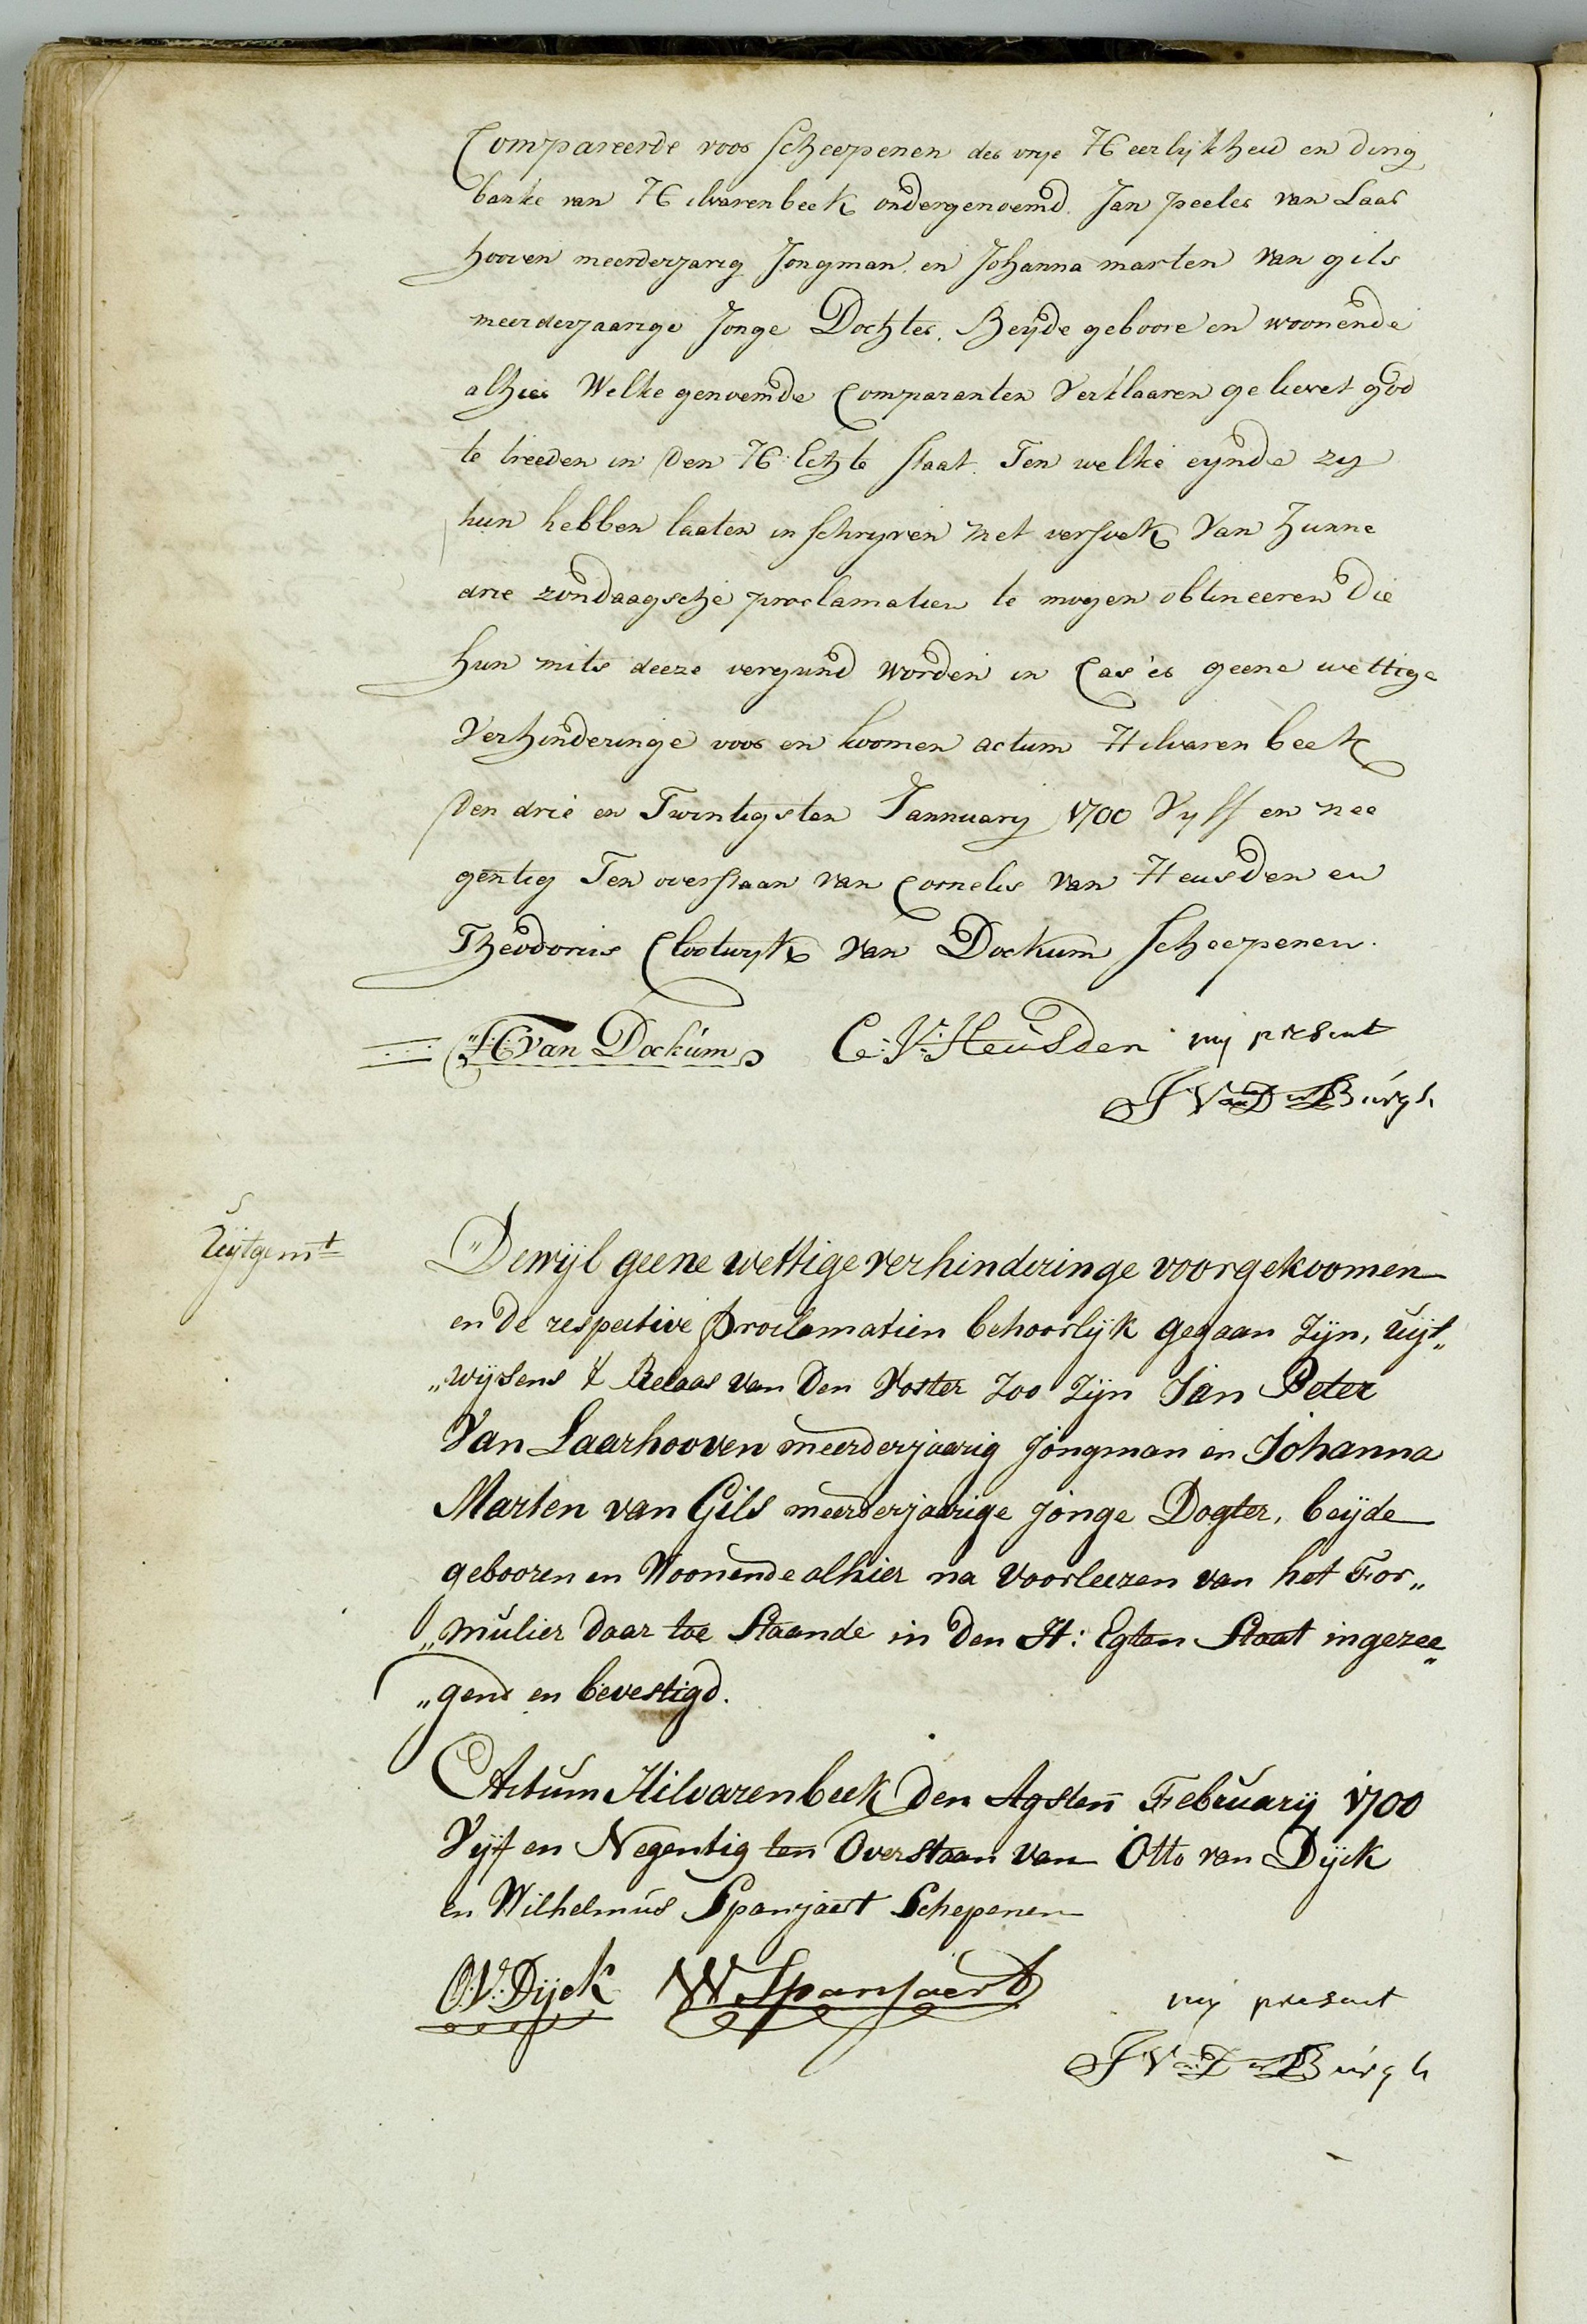 Compareerde voor scheepenen der vrije Heerlijkheid en ding
banke van Hilvarenbeek ondergenoemd. Jan peeter van Laar
hooven meerderjarig Jongman. en Johanna marten van gils
meerderjaarige Jonge Dochter. Beyde geboore en woonende
alhier Welke genoemde Comparanten Verklaaren gelievet god
te treeden in den H: Echte staat. Ten welke eynde zy
hun hebben laaten in schryven met versoek van hunne
drie zondaagsche proclamatien te mogen obtineeren Die
hun mits deeze vergund worden in Cas'er geene wettige
Verhinderinge voor en koomen actum Hilvarenbeek
den drie en Twintigsten Jannuary 1700 Vyff en nee
gentig Ten overstaan van Cornelis van Heusden en
Theodorus Clootwyk van Dockum scheepenen.
van Dockum C: V: Heusden mij present
J Van Der Burgh
Uijtgemt
Dewijl geene wettige verhinderinge voorgekoomen
en de respective proclamatien behoorlijk gegaan zijn, uijt„
„wijsens 't Relaas van den Voster zoo zijn Jan Peter
Van Laarhooven meerderjaarig jongman en Johanna
Marten van Gils meerderjaarige jonge Dogter, beijde
gebooren en Woonende alhier na voorleezen van het For„
„mulier daar toe Staande in den H: Egten Staat ingezee„
„gend en bevestigd.
Actum Hilvarenbeek den Agsten February 1700
Vijf en Negentig ten Overstaan van Otto van Dijck
en Wilhelmus Spanjaert Schepenen
O: V: Dijck W Spanjaert mij present
J Van Der Burgh